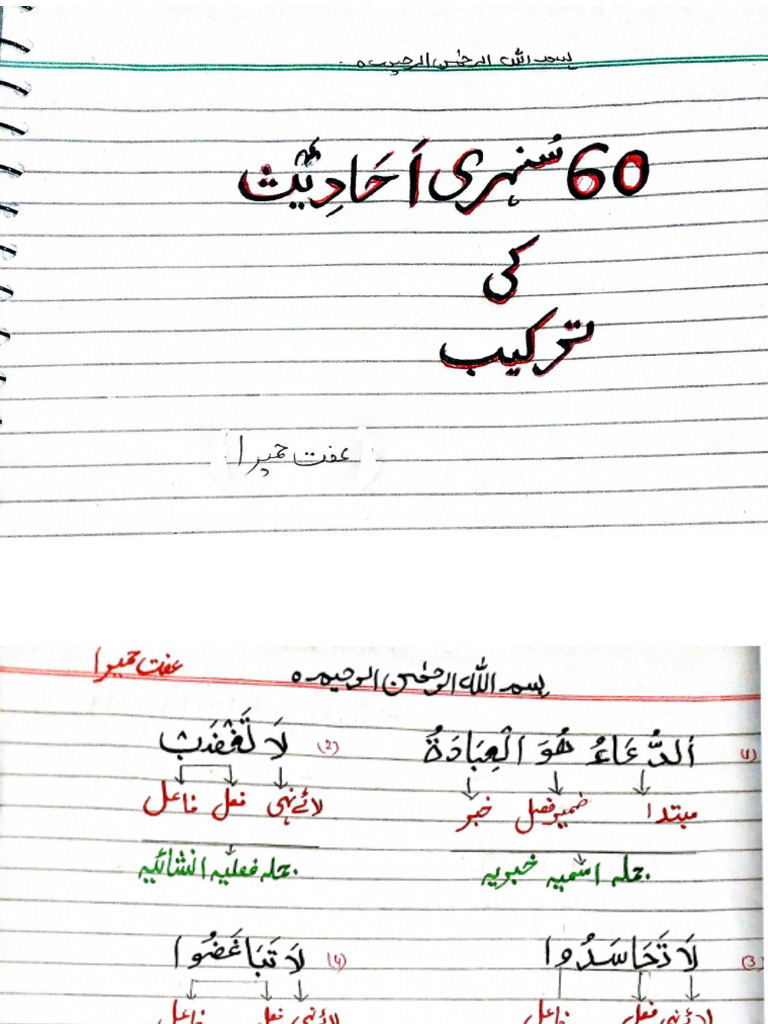 بسم اللہ الرحمٰن الرحیم ہ
60 سُنہری اَحَادِیْث
کی
ترکیب
عفت حمیرا
عفت حمیرا
بسم اللہ الرحمٰن الرحیم ہ
(1) اَلدُّعَاءُ هُوَ الْعِبَادَةُ (2) لَا تَغْضَبْ
مبتدا ضمیر فصل خبر لائے نہی فعل فاعل
جملہ اسمیہ خبریہ جملہ فعلیہ انشائیہ
(3) لَا تَحَاسَدُوا (4) لَا تَبَاغَضُوا
لائے نہی فعل فاعل لائے نہی فعل فاعل